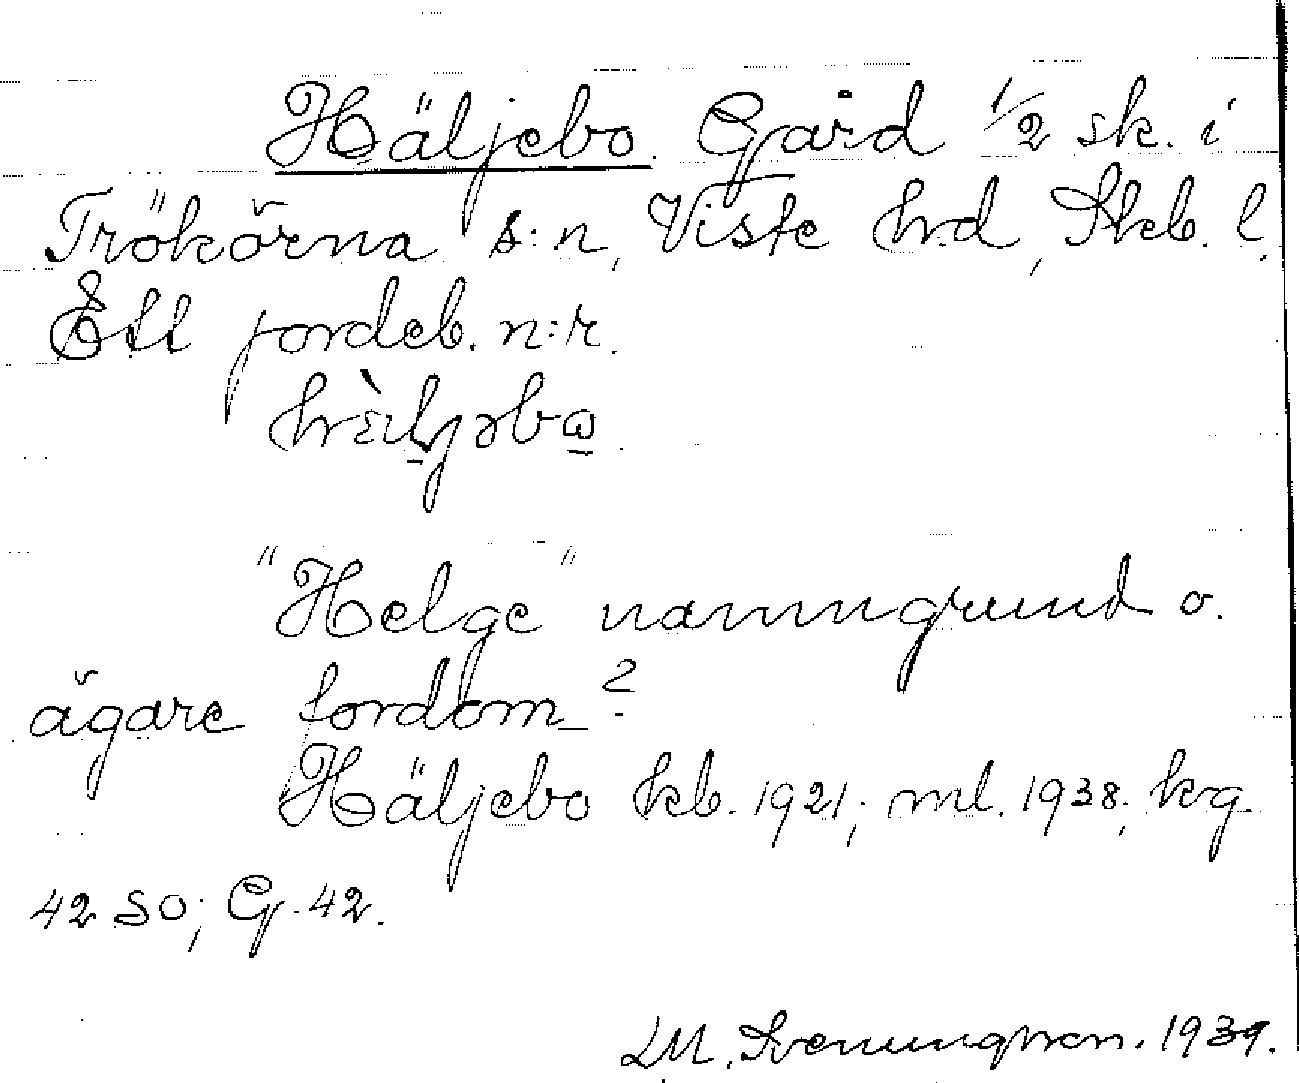 Häljebo Gård 1/2 sk. i
Trökörna s:n, Viste hd, Skb. l.
Ett jordeb. n:r.
hɛ̀ḻjəbω̱.
"Helge" namngrund o.
ägare fordom?
Häljebo kb. 1921; ml. 1938; krg
42 SO; G. 42.
LM. Svenungsson. 1939.